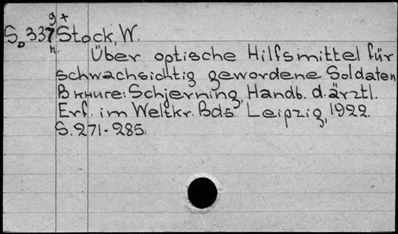 9+
S. 337 Stock, W.
h.
Über optische Hilfsmittel für
schwachsichtig gewordene Soldaten
В книге: Schjerning, Handb. d. ärztl.
Erf. im Weltkr. Bd5, Leipzig, 1922.
S. 271-285.